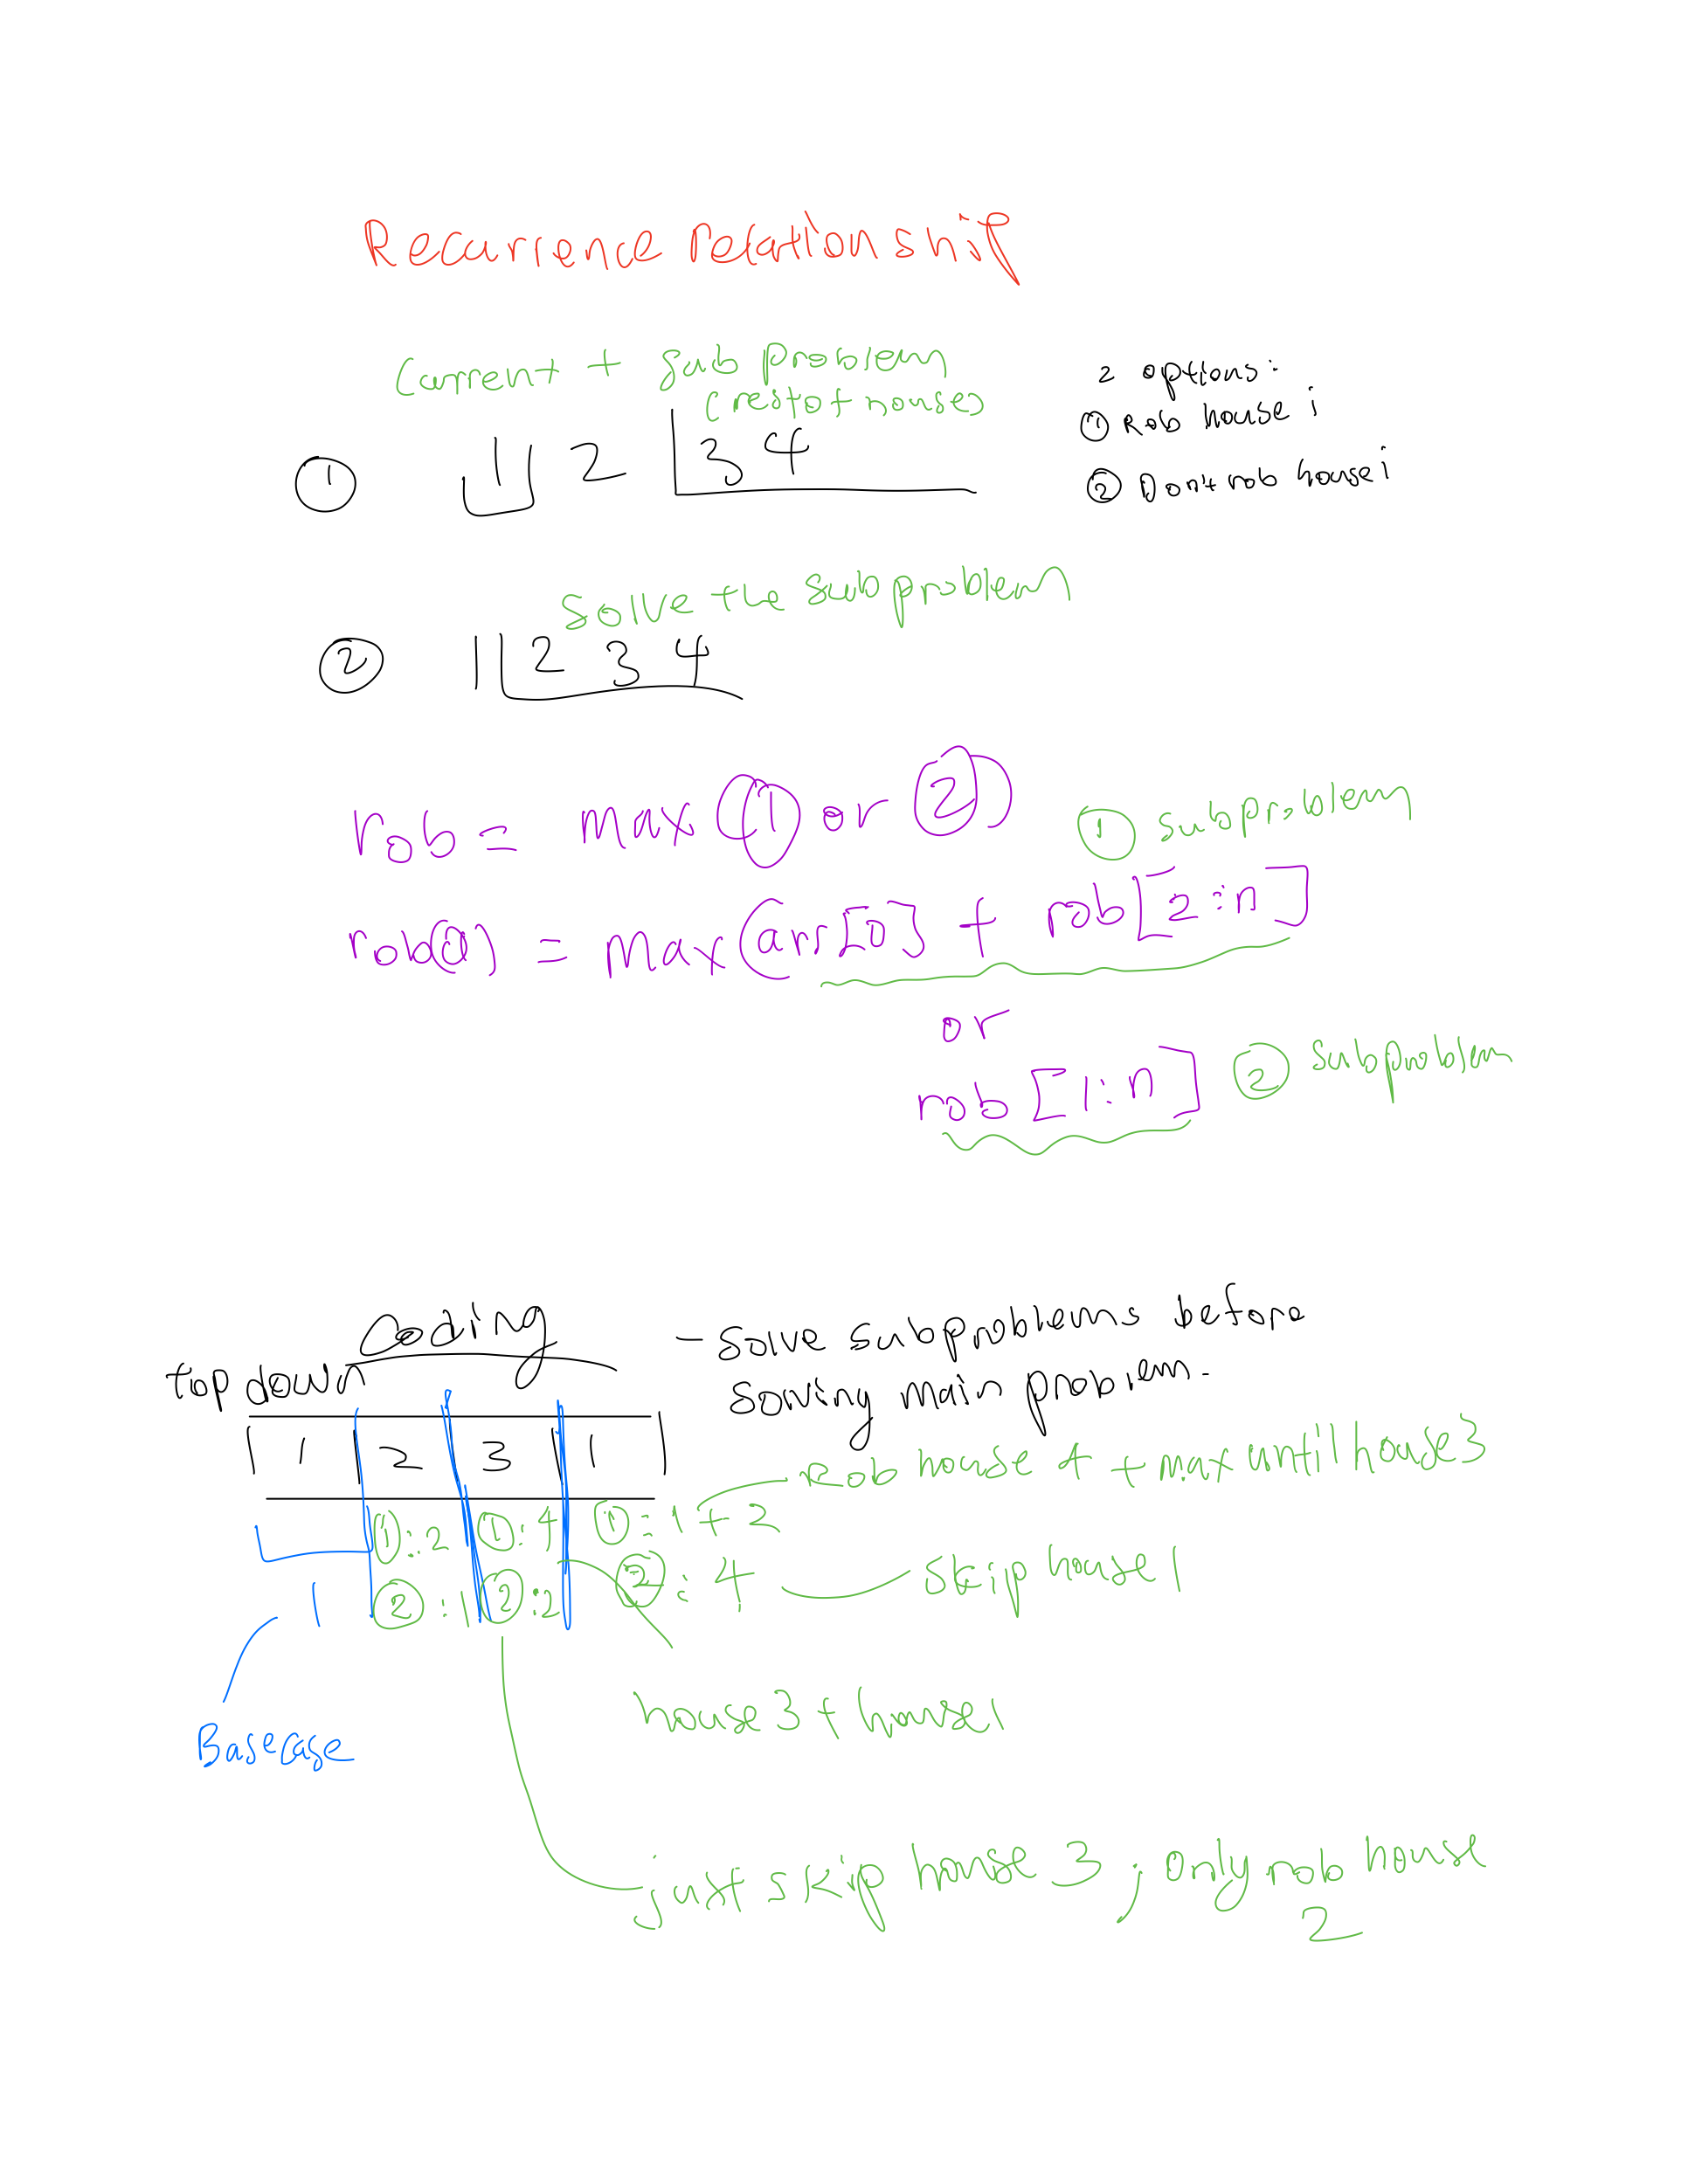 Recurrence relationship
Current + sub problem
(rest of houses
2 options:
① Rob house i
② Don't rob house i
① 1 2 3 4
Solve the subproblem
② 1 2 3 4
rob = max(① or ②)
① subproblem
rob(0) = max(arr[0] + rob[2:n]
or
rob[1:n] ② subproblem
Coding
top down
- solve subproblems before
solving main problem.
1 2 3 1
Rob house 4 + max until house 3
①:2 ①:4 ①:1+2
②:1 ②:2 ②:4
skip house 1
1
house 3 + house 1
Base case
just skip house 3; only rob house
2